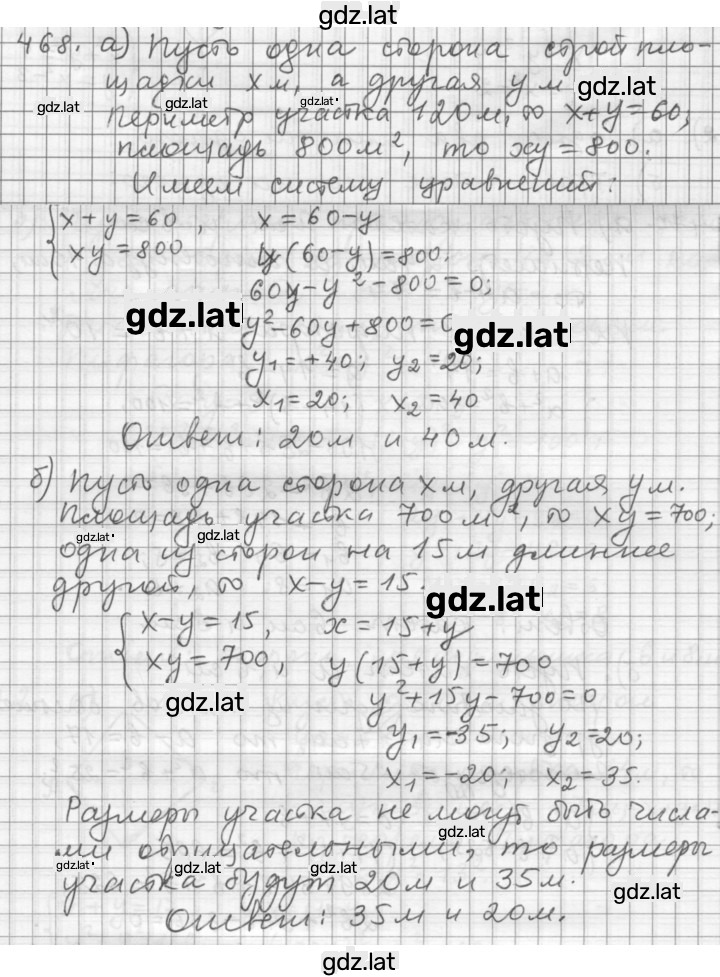 gdz.lat
468. а) Пусть одна сторона стройпло-
щадки x м, а другая y м
gdz.lat
gdz.lat gdz.lat gdz.lat
Периметр участка 120м, то x+y=60;
площадь 800м², то xy=800.
Имеем систему уравнений:
{x+y=60, x=60-y
xy=800 y(60-y)=800.
60y-y²-800=0;
gdz.lat
y²-60y+800=0
gdz.lat
y₁=+40; y₂=20;
x₁=20; x₂=40
Ответ: 20м и 40м.
б) Пусть одна сторона x м, другая y м.
Площадь участка 700м², то xy=700;
gdz.lat gdz.lat
одна из сторон на 15м длиннее
другой, то x-y=15.
gdz.lat
{x-y=15, x=15+y
xy=700, y(15+y)=700
gdz.lat
y²+15y-700=0
y₁=-35; y₂=20;
x₁=-20; x₂=35.
Размеры участка не могут быть числа-
gdz.lat
ми отрицательными, то размеры
gdz.lat gdz.lat gdz.lat
участка будут 20м и 35м.
gdz.lat
Ответ: 35м и 20м.
gdz.lat